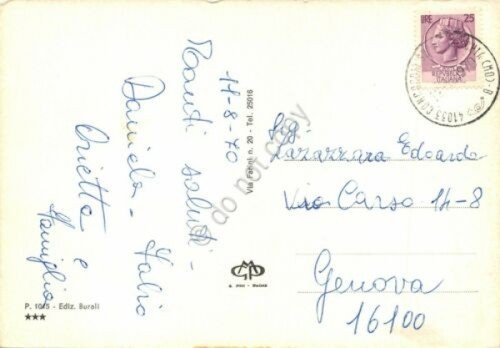 14-8-70
Tanti saluti -
Daniela - Fabio
Orietta e
famiglia
P. 1045 - Ediz. Buroli
★★★
Via Farini n. 20 - Tel. 25016
do not copy
LIRE 25
REPUBBLICA
ITALIANA
41033
Sg.
Lazazzara Edoardo
Via Carso 14-8
Genova
16100